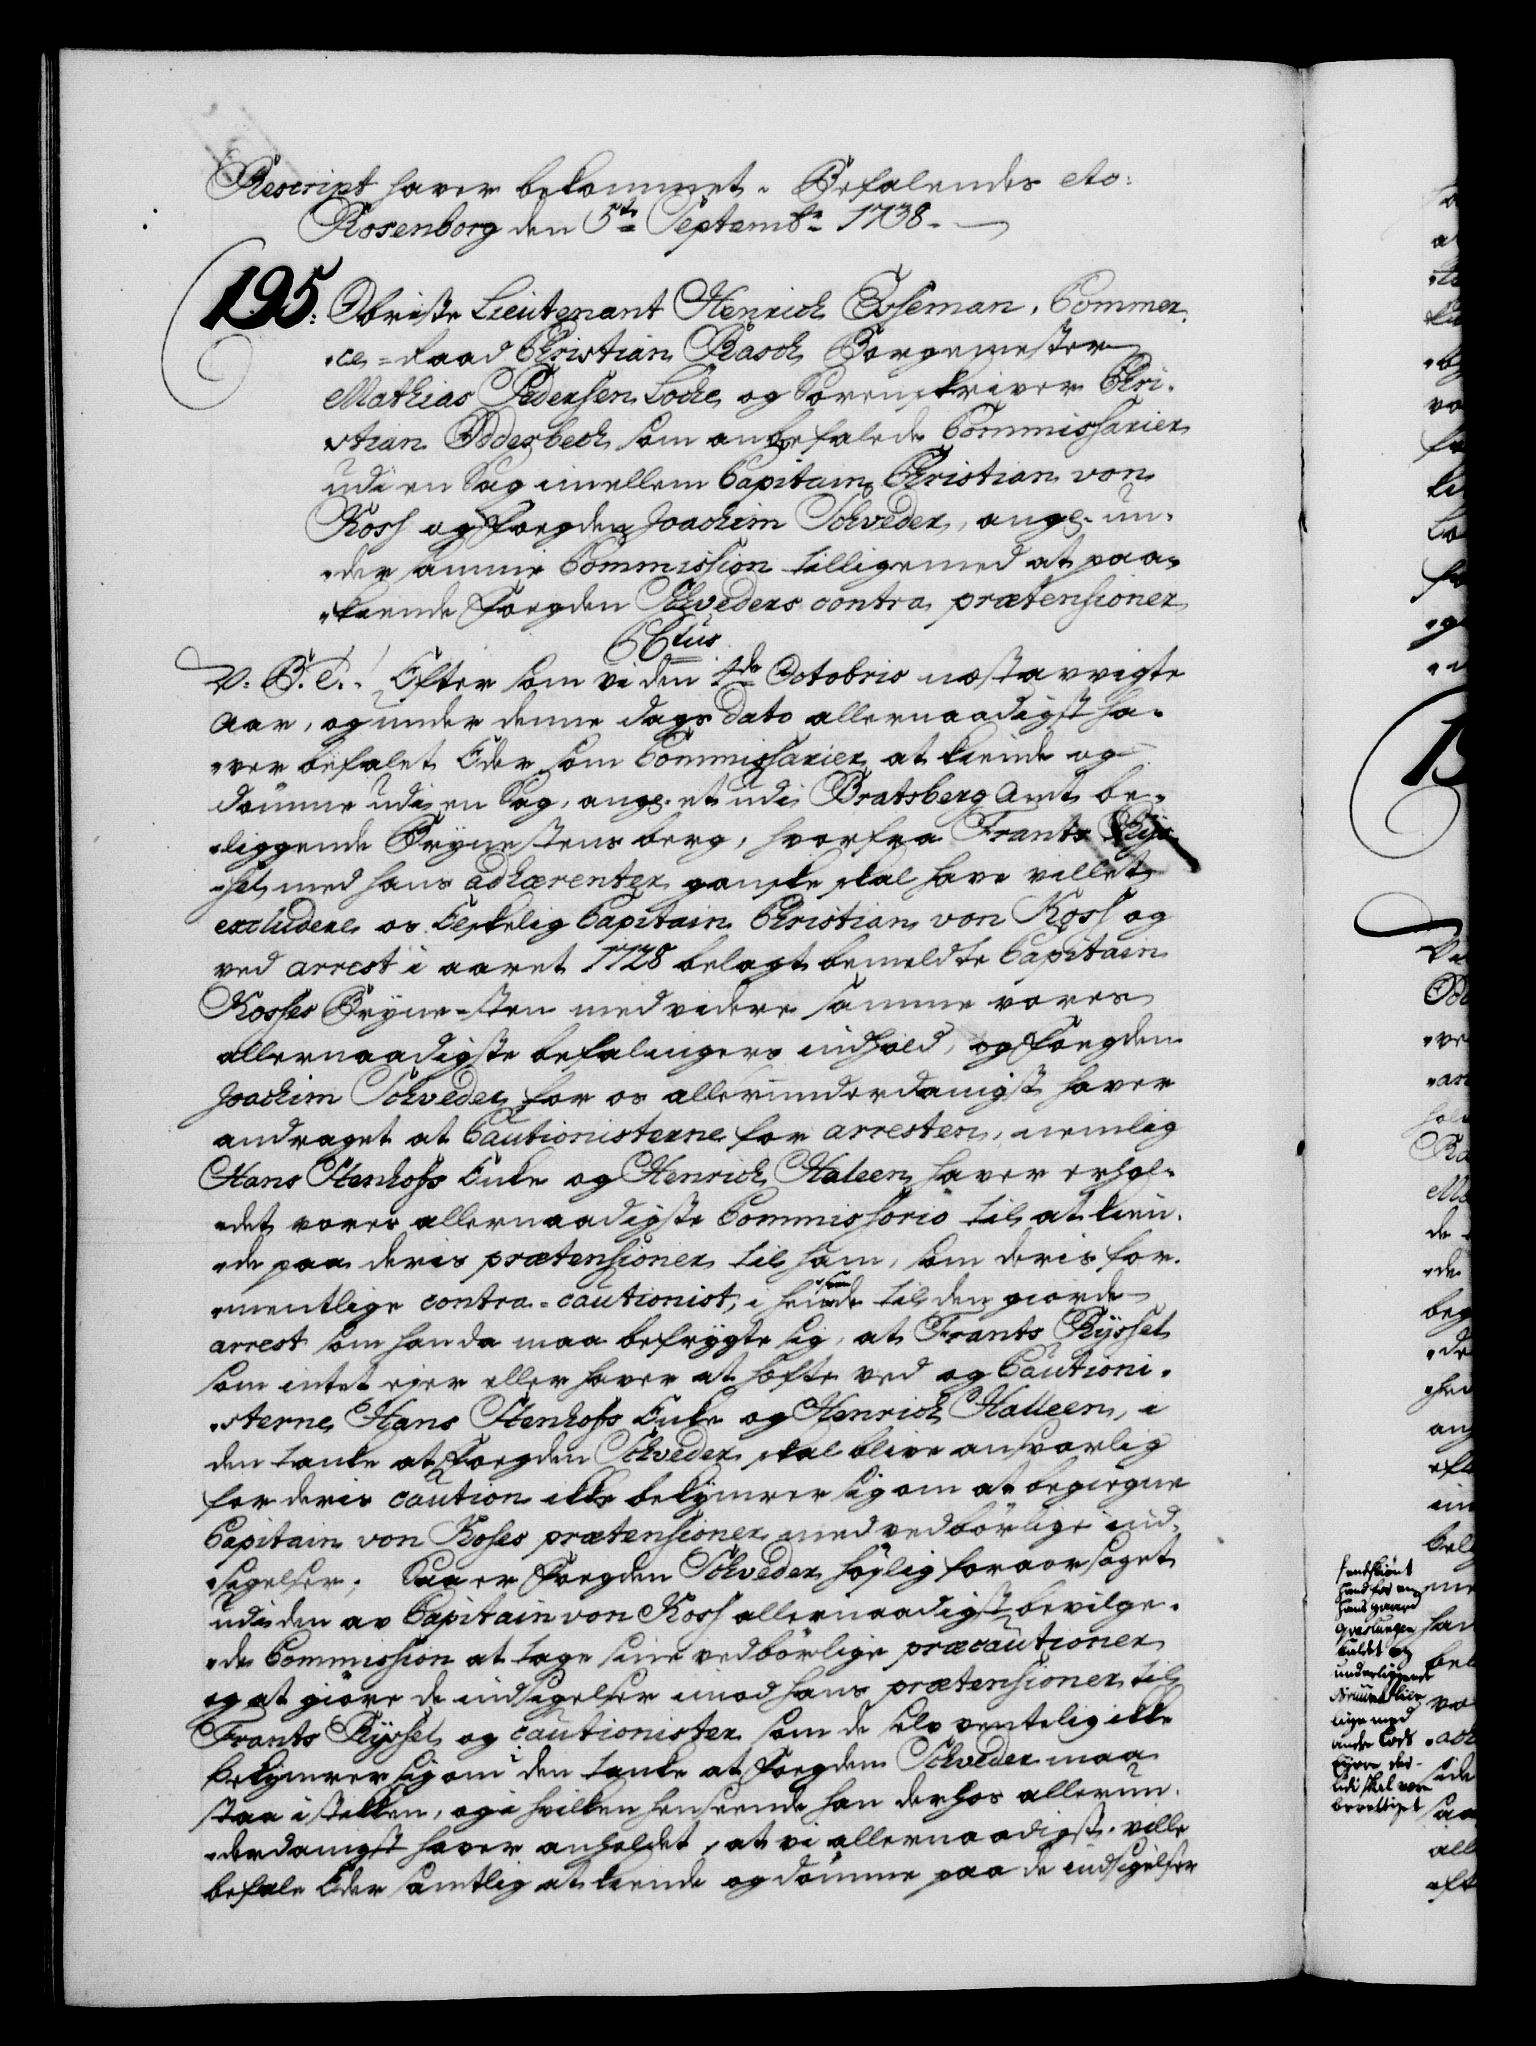 Rescript haver bekommet. Befalendes etc:
Rosenborg den 5te Septembr 1738.
195. Obriste Lieutenant Henrich Coseman, Commer,
„ce=Raad Christian Rasch Borgemester
Mathias Pedersen Loche og Sorenskriver Chri„
„stian Boderbech som anbefalede Commissarier
udi en Sag imellem Capitain Christian von
Koss og Foegden Joachim Schveder, angl. un„
„der samme Commission tilligemed at paa„
„kiende Foegden Schveders contra prætensioner
C6tus
V. G. T. Efter som vi den 4de Octobris næstavvigte
Aar, og under denne dags Dato allernaadigst ha„
„ver befalet Eder som Commissarier at kiende og
dømme udi en Sag, angl. et udi Bratsberg Amt be„
„liggende Brynestens berg, hvorfra Frants Rys
„sel, med hans adhærenter ganske skal have villet
excludere os Elskelig Capitain Christian von Koss og
ved arrest i aaret 1728 belagt bemeldte Capitain
Kosses Bryne=sten med videre samme vores
allernaadigste befalingers indhold, og Foegden
Joachim Schveder for os allerunderdanigst haver
andraget at Cautionisterne for arresten, nemlig
Hans Stenhofs Enke og Henrich Halleen haver erhol„
„det vores allernaadigste Commissorio til at kien„
„de paa deris prætensioner til ham, som deris for„
„mentlige contra=cautionist, i hensende til den giorde
arrest som han da maa befrygte sig, at Frants Ryssel
som intet ejer eller haver at hæfte ved og Cautioni„
„sterne Hans Stenhofs Enke og Henrich Halleen, i
den tanke at Foegden Schveder skal blive ansvarlig
for deris caution ikke bekymrer sig om at begiegne
Capitain von Koses prætensioner med vedbørlige ind„
„sigelser; Saa er Foegden Schveder høylig foraarsaget
udi den av Capitain von Koss allernaadigst bevilge„
„de Commission at tage sine vedbørlige præcautioner
og at giøre de indsigelser imod hans prætensioner til
Frants Ryssel og cautionister som de selv ventelig ikke
bekymrer sig om i den tanke at Foegden Schveder maa
staa i stikken, og i hvilken henseende han derhos allerun„
„derdanigst haver anholdet, at vi allernaadigst ville
befale Eder samtlig at kiende og dømme paa de indsigelser